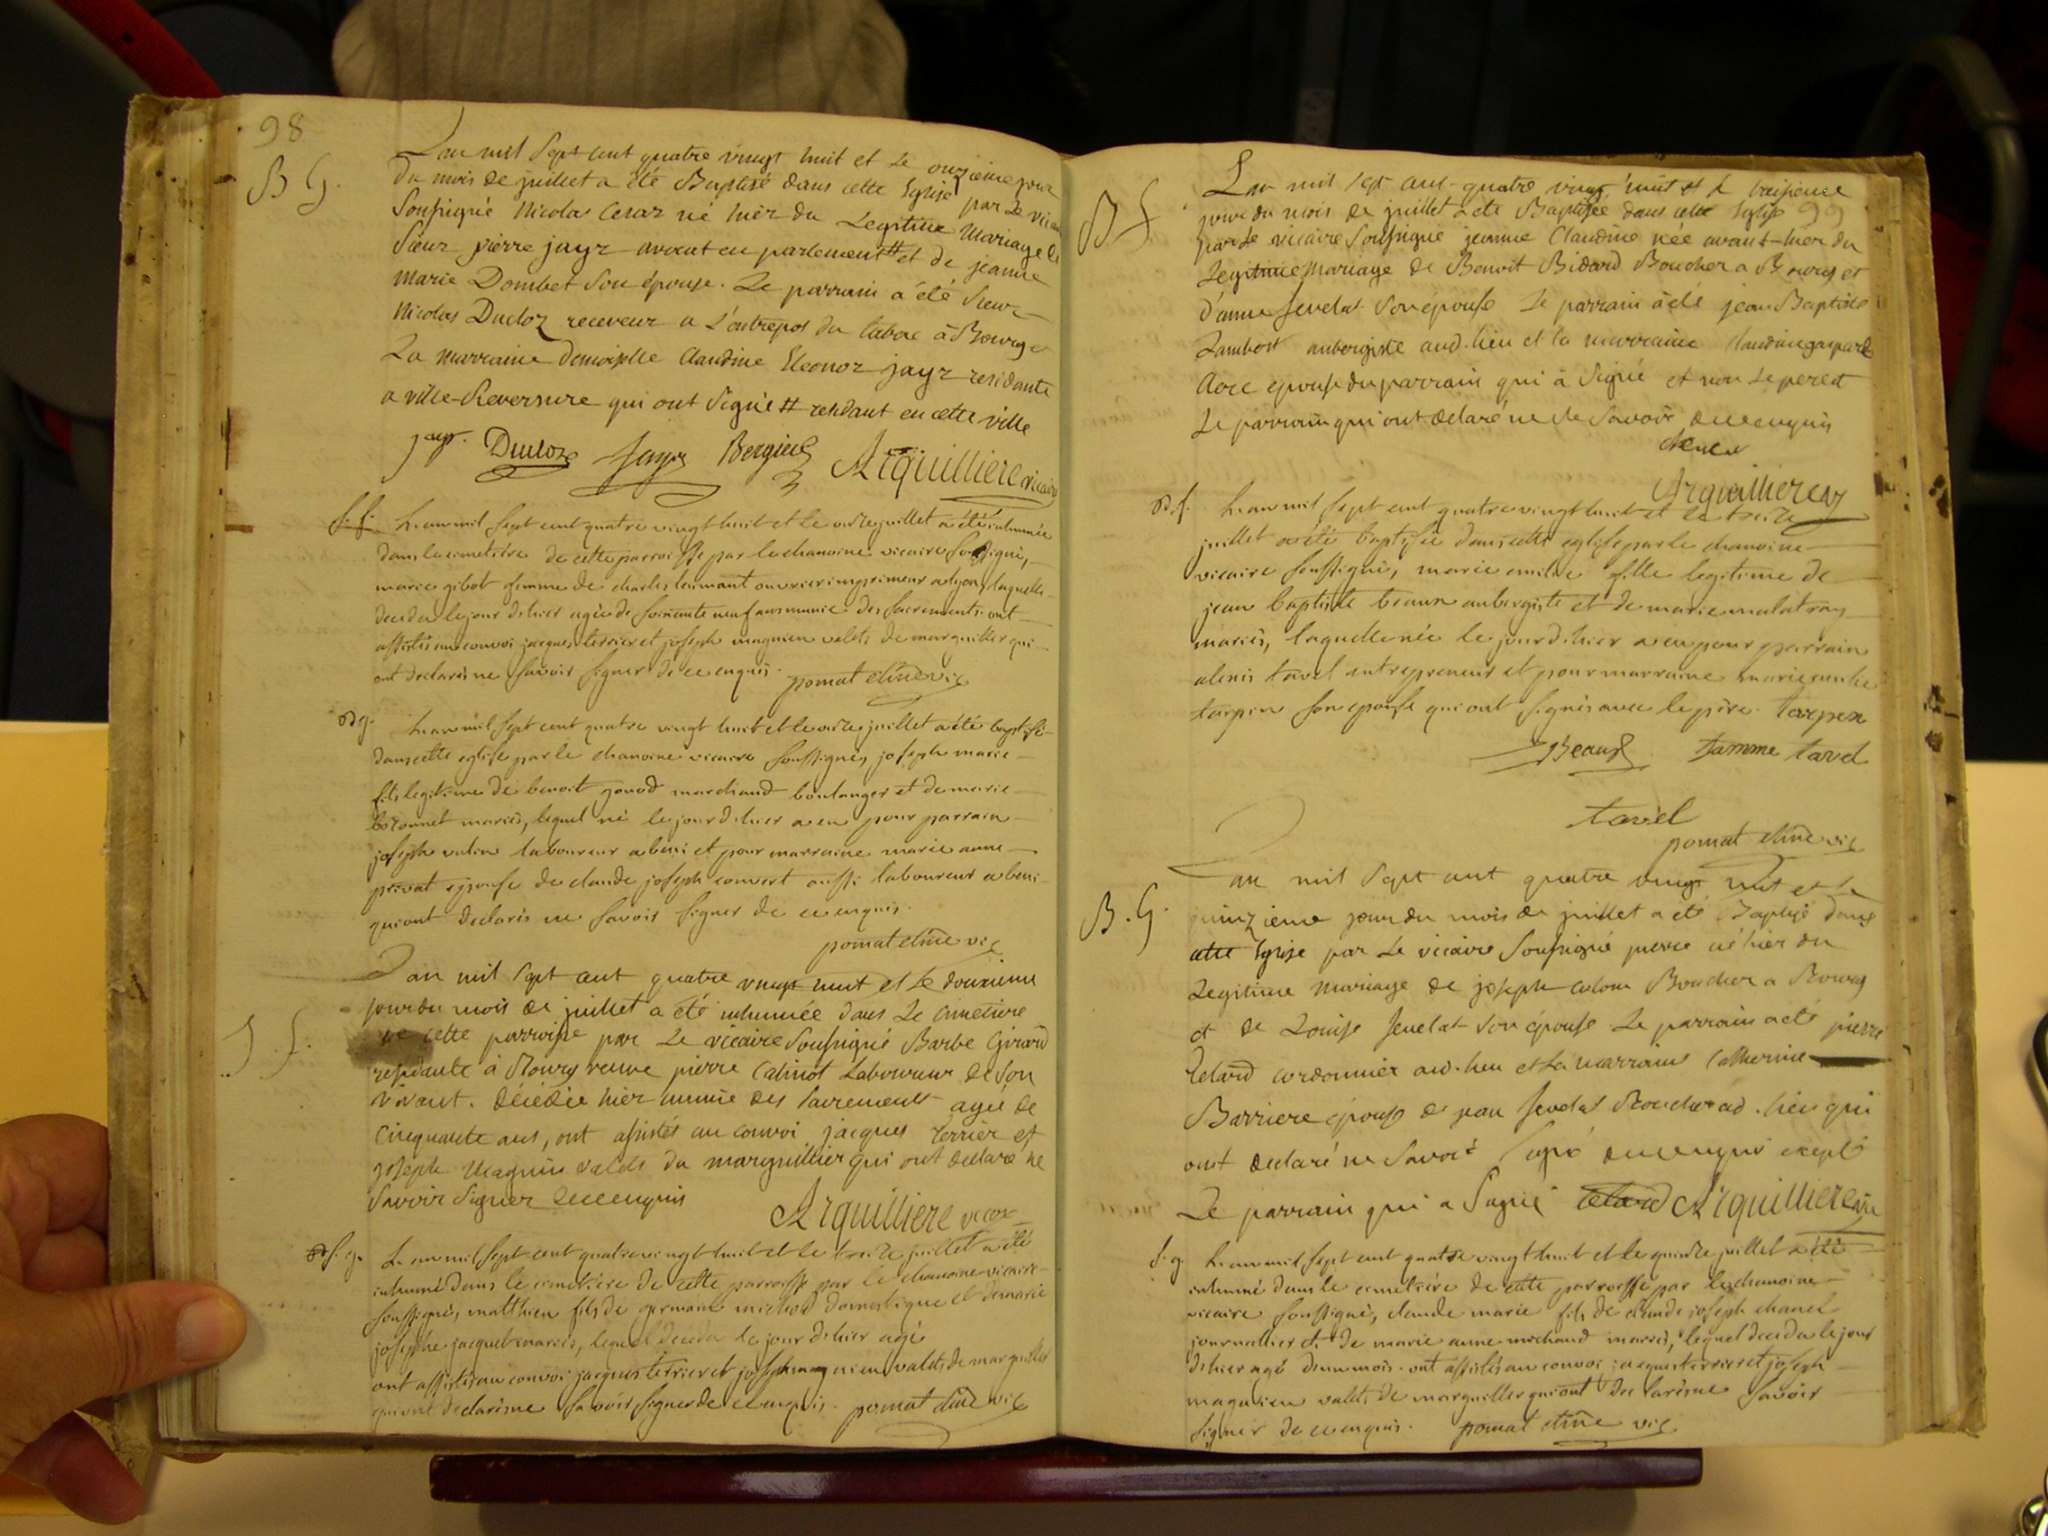 98
B G.
L'an mil sept cent quatre vingt huit et le onzieme jour
du mois de juillet a été Baptisé dans cette Eglise par le vicaire
soussigné Nicolas Cesar né hier du Legitime Mariage de
sieur pierre jayr avocat en parlement # et de jeanne
Marie Dombet son épouse. Le parrain a été sieur
Nicolas Ducloz receveur a l'entrepos du tabac à Bourg et
La marraine demoiselle Claudine Eleonor jayr residante
a ville-Reversure qui ont signé # residant en cette ville
jayr. Ducloz jayr Arquilliere vicaire
s. f. L'an mil sept cent quatre vingt huit et le onze juillet a été inhumée
dans le cimetière de cette parroisse par le chanoine vicaire soussigné,
marie gibot femme de charles ouvrier imprimeur a lyon, laquelle
decedée le jour d'hier agée de soixante neuf ans munie des sacrements. ont
assistés au convoi jacques terrier et joseph magnien valets de marguillier qui
ont declarés ne savoir signer de ce enquis. pomat chne vic
B g. L'an mil sept cent quatre vingt huit et le onze juillet a été baptisé
dans cette eglise par le chanoine vicaire soussigné, joseph marie
fils legitime de benoit gonod marchand boulanger et de marie
mariés, lequel né le jour d'hier a eu pour parrain
joseph laboureur a et pour marraine marie anne
privat epouse de claude joseph convert aussi laboureur a
qui ont declarés ne savoir signer de ce enquis.
pomat chne vic
L'an mil sept cent quatre vingt huit et le douzieme
S. f.
jour du mois de juillet a été inhumée dans Le Cimetiere
de cette parroisse par Le vicaire soussigné Barbe Girard
residante à Bourg veuve pierre Catinot Laboureur de son
vivant. décédée hier munie des sacrements agée de
cinquante ans, ont assistés au convoi jacques terrier et
joseph Magnin valets du marguillier qui ont declaré ne
savoir signer de ce enquis Arquilliere vicaire
s. g. L'an mil sept cent quatre vingt huit et le treize juillet a été
inhumé dans le cimetière de cette parroisse par le chanoine vicaire
soussigné, matthieu fils de germain michod domestique et de marie
josephe jacquet mariés, lequel decedé le jour d'hier agé
ont assistés au convoi jacques terrier et joseph magnien valets de marguillier
qui ont declarés ne savoir signer de ce enquis. pomat chne vic
B f
L'an mil sept cent quatre vingt huit et le treizieme
jour du mois de juillet a été Baptisée dans cette Eglise 99
par le vicaire soussigné jeanne Claudine née avant-hier du
Legitime Mariage de Benoit Bidard Boucher a Bourg et
d'anne Jevelat son épouse Le parrain à été jean Baptiste
Lambert aubergiste aud. lieu et la marraine Claudine gaspard
épouse du parrain qui à signé et non le pere et
Le parrain qui ont déclaré ne le savoir de ce enquis
Arquilliere
B. f. L'an mil sept cent quatre vingt huit et le treize
juillet a été baptisée dans cette eglise par le chanoine
vicaire soussigné, marie emilie fille legitime de
jean baptiste beaux aubergiste et de marie malatray
mariés, laquelle née le jour d'hier a eu pour parrain
alexis tavel entrepreneur et pour marraine marie
tarpin son epouse qui ont signés avec le père. tarpin
Beaux famme tavel
tavel
pomat chne vic
L'an mil sept cent quatre vingt huit et le
B. G.
quinzieme jour du mois de juillet a été Baptisé dans
cette Eglise par Le vicaire soussigné pierre né hier du
Legitime Mariage de joseph colom Boucher a Bourg
et de Louise Jevelat son épouse Le parrain a été pierre
Telard cordonnier aud. lieu et la marraine Catherine
Barriere épouse de jean Jevelat Boucher aud. lieu qui
ont declaré ne savoir signé de ce enquis excepté
Le parrain qui a Signé Telard Arquilliere vic
s. g. L'an mil sept cent quatre vingt huit et le quinze juillet a été
inhumé dans le cimetière de cette parroisse par le chanoine
vicaire soussigné, claude marie fils de claude joseph chanel
journalier et de marie anne michaud mariés, lequel decedé le jour
d'hier agé d'un mois. ont assistés au convoi jacques terrier et joseph
magnien valets de marguillier qui ont declarés ne savoir
signer de ce enquis. pomat chne vic